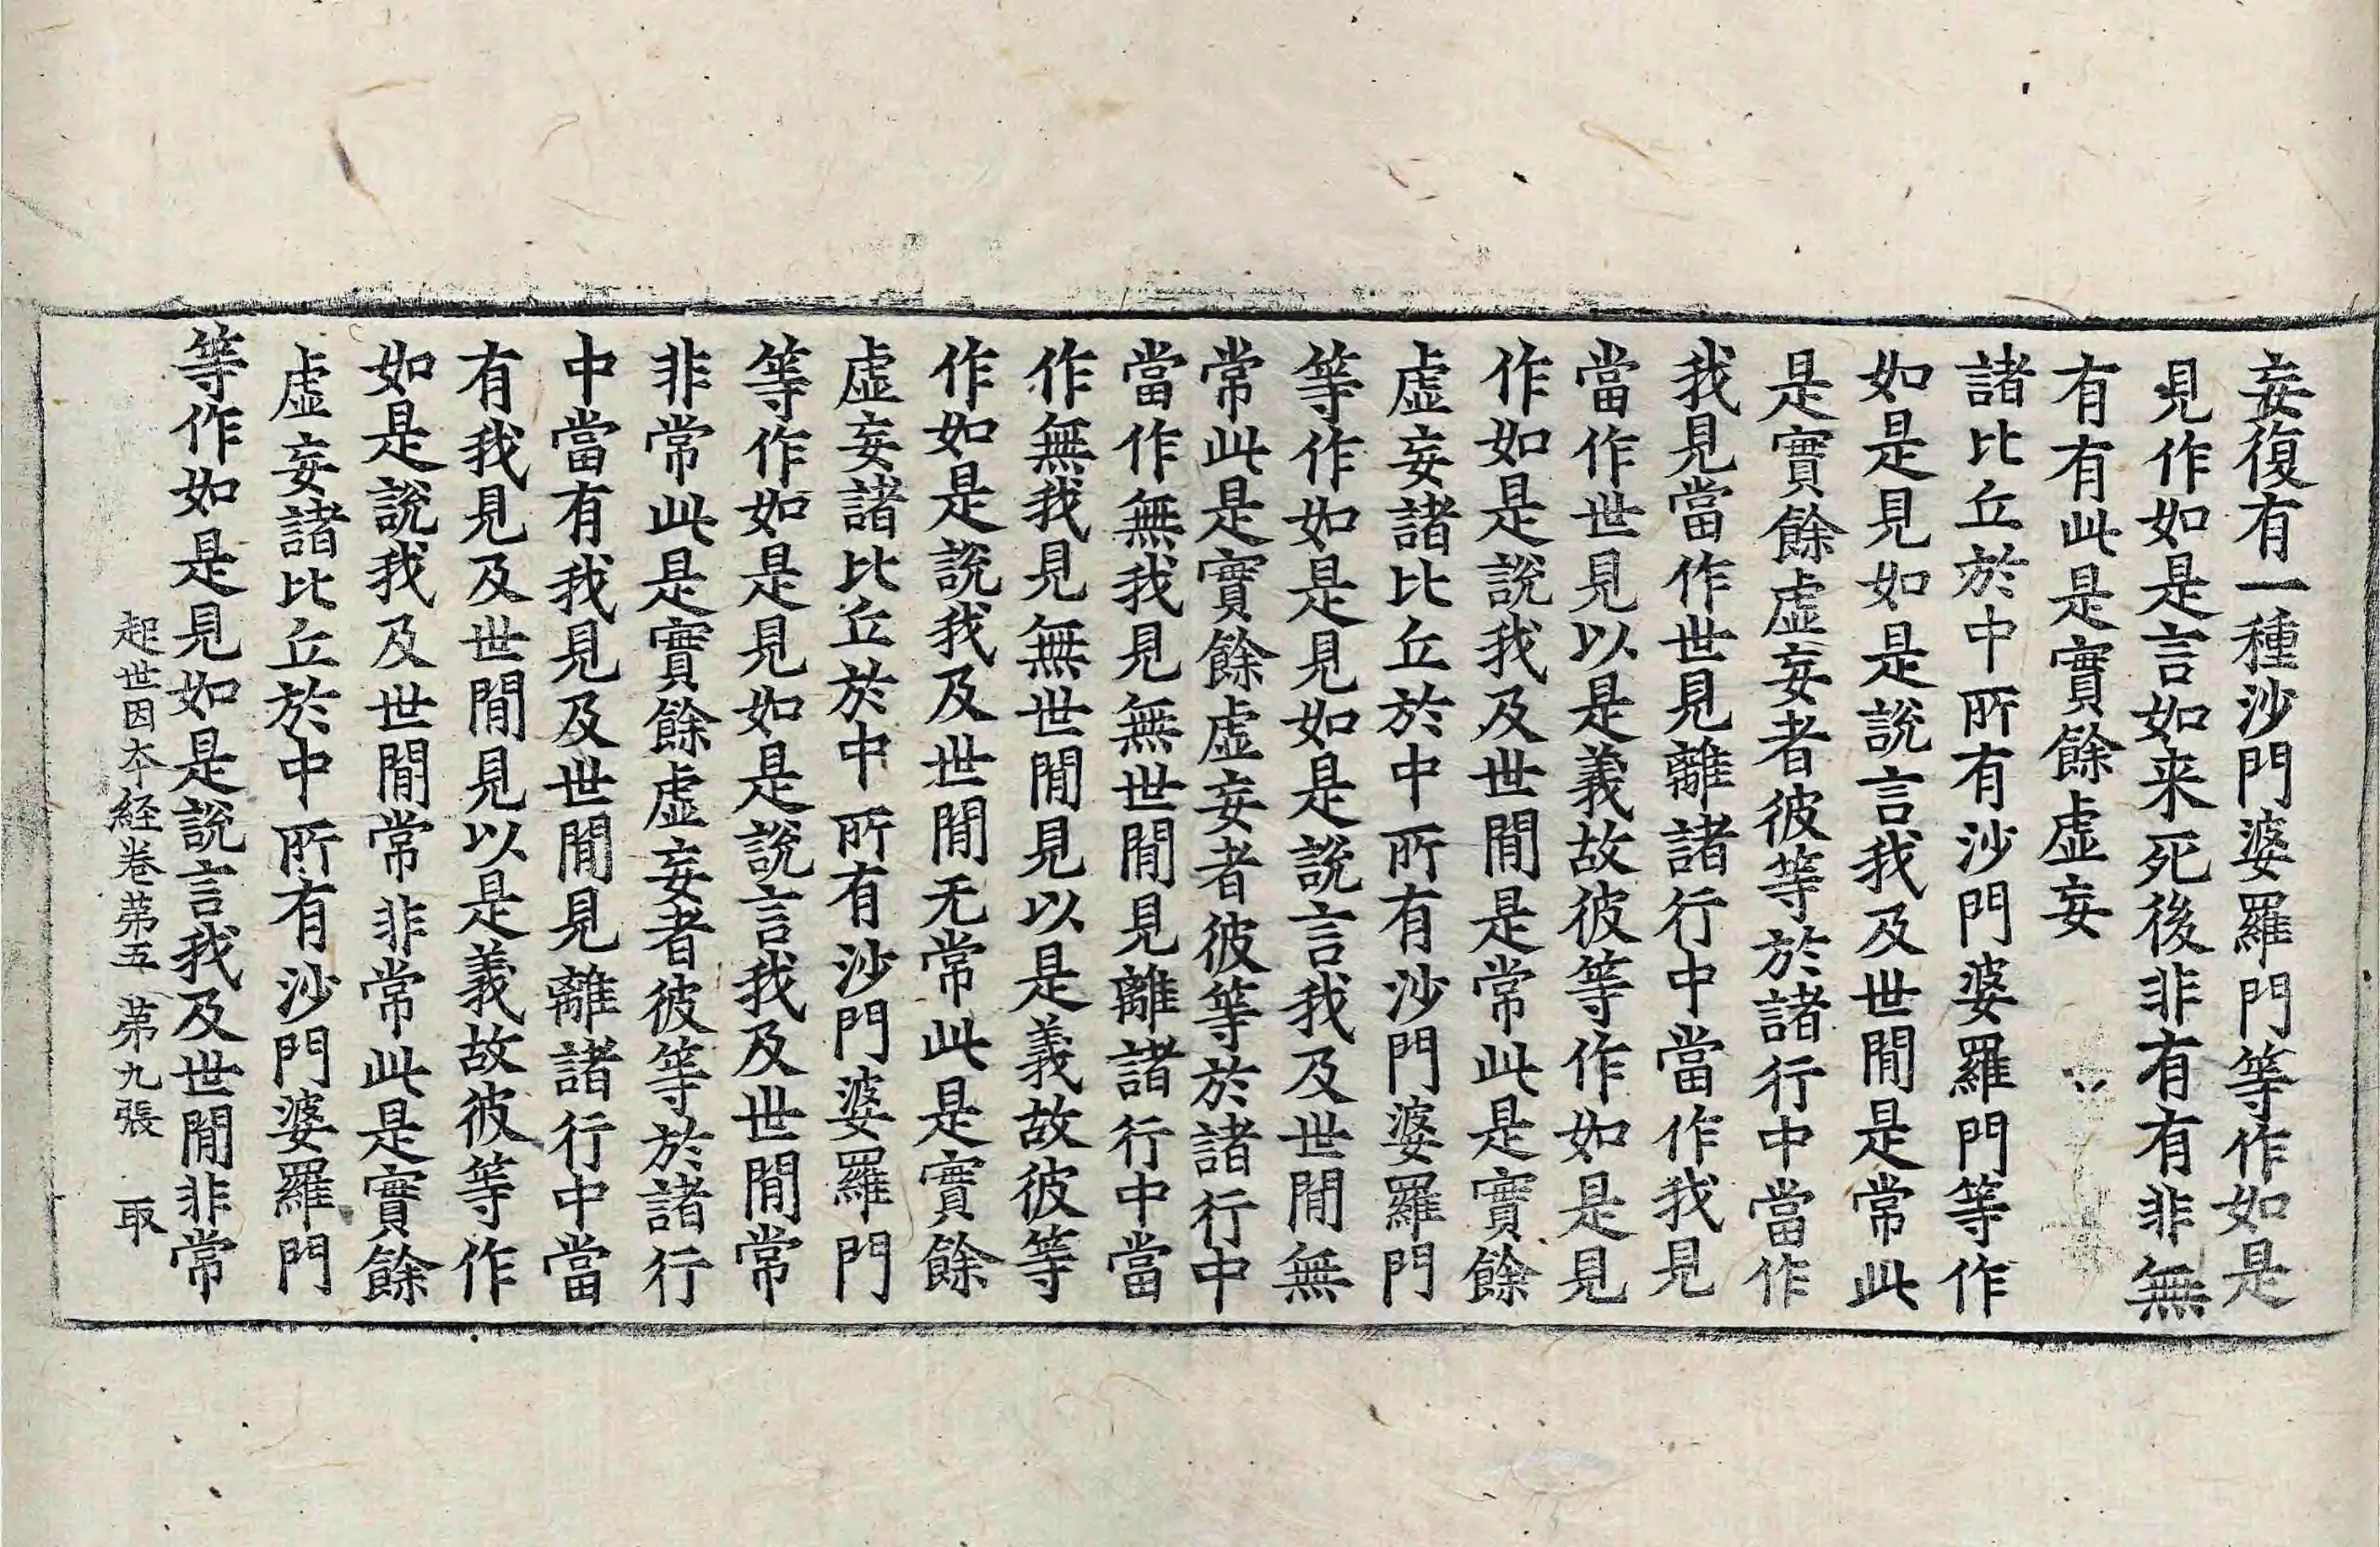 妄復有一種沙門婆羅門等作如是
見作如是言如来死後非有有非無
有有此是實餘虛妄
諸比丘於中所有沙門婆羅門等作
如是見如是說言我及世間是常此
是實餘虛妄者彼等於諸行中當作
我見當作世見離諸行中當作我見
當作世見以是義故彼等作如是見
作如是說我及世間是常此是實餘
虛妄諸比丘於中所有沙門婆羅門
等作如是見如是說言我及世間無
常此是實餘虛妄者彼等於諸行中
當作無我見無世間見離諸行中當
作無我見無世間見以是義故彼等
作如是說我及世間无常此是實餘
虛妄諸比丘於中所有沙門婆羅門
等作如是見如是說言我及世間常
非常此是實餘虛妄者彼等於諸行
中當有我見及世間見離諸行中當
有我見及世間見以是義故彼等作
如是說我及世間常非常此是實餘
虛妄諸比丘於中所有沙門婆羅門
等作如是見如是說言我及世間非常
起世因本經卷第五 第九張 取